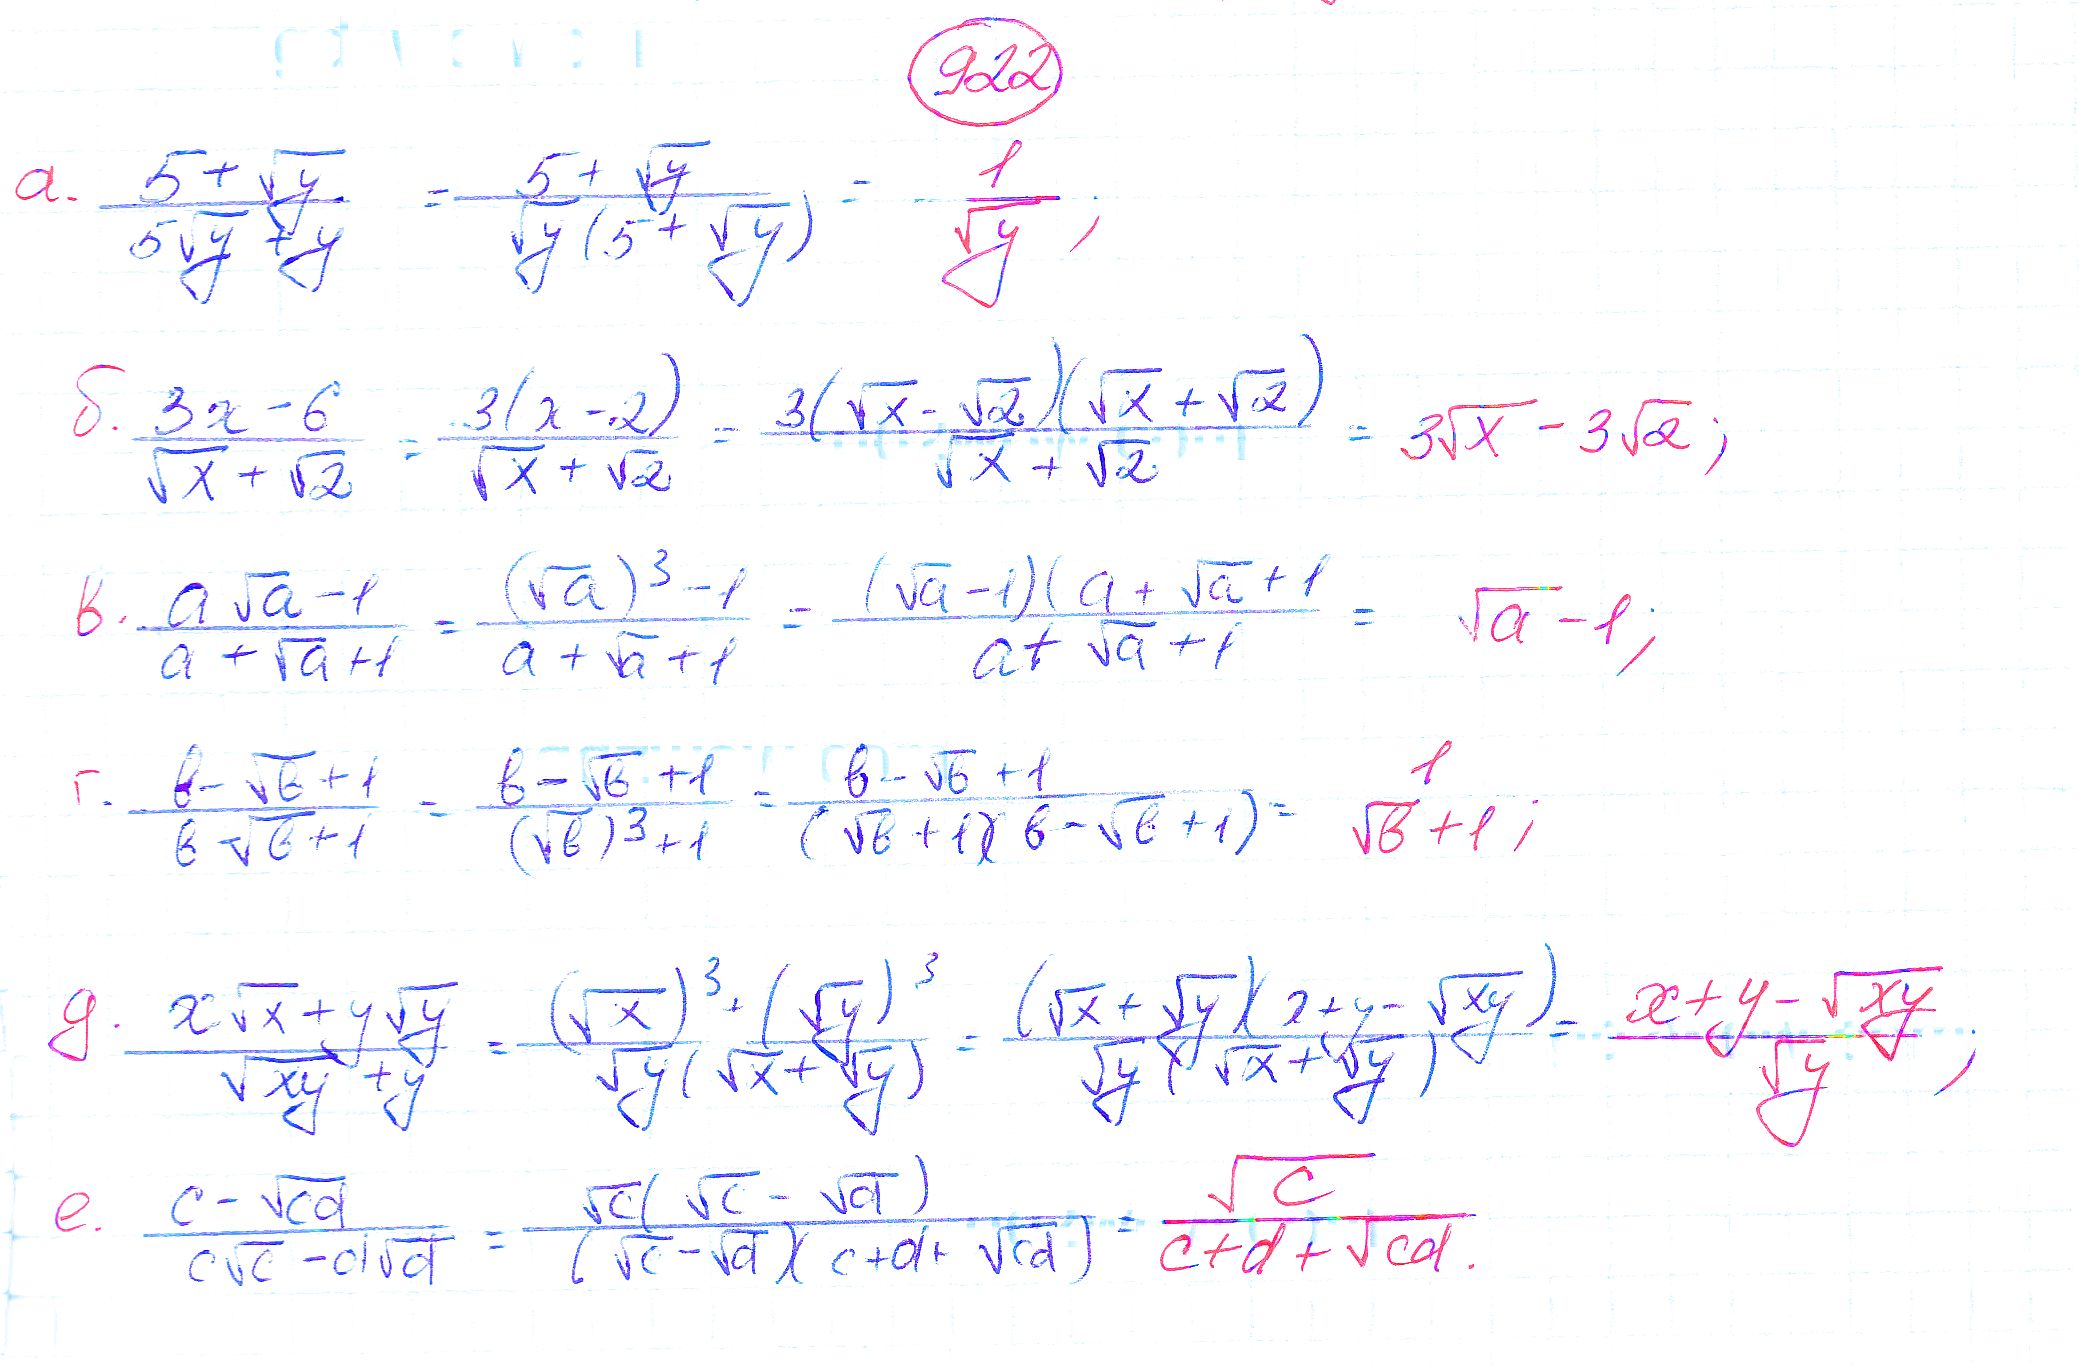 922
а. (5+√y)/(5√y+y) = (5+√y)/(√y(5+√y)) = 1/√y;
б. (3x-6)/(√x+√2) = 3(x-2)/(√x+√2) = 3(√x-√2)(√x+√2)/(√x+√2) = 3√x-3√2;
в. (a√a-1)/(a+√a+1) = ((√a)³-1)/(a+√a+1) = (√a-1)(a+√a+1/(a+√a+1) = √a-1;
г. (b-√b+1)/(b-√b+1) = (b-√b+1)/((√b)³+1) = (b-√b+1)/((√b+1)(b-√b+1)) = 1 √b+1;
д. (x√x+y√y)/(√xy+y) = ((√x)³+(√y)³)/(√y(√x+√y)) = (√x+√y)(x+y-√xy)/(√y(√x+√y)) = (x+y-√xy)/√y;
е. (c-√cd)/(c√c-d√d) = √c(√c-√d)/((√c-√d)(c+d+√cd)) = √c/(c+d+√cd).